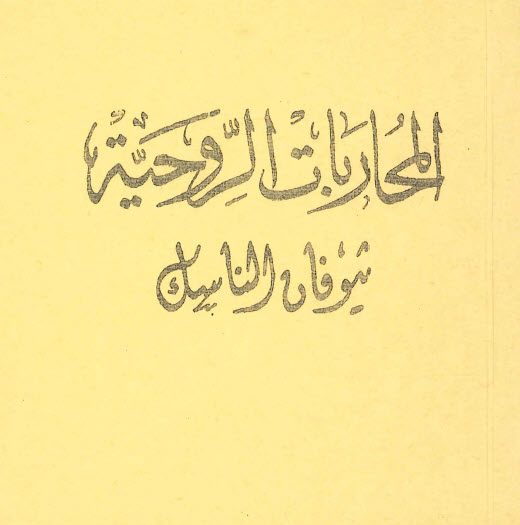 المحاربات الرّوحيّة
ثيوفان الناسك